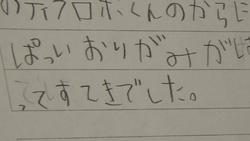 のティラロボくんのからに
ぱっいおりがみがは
ってすてきでした。